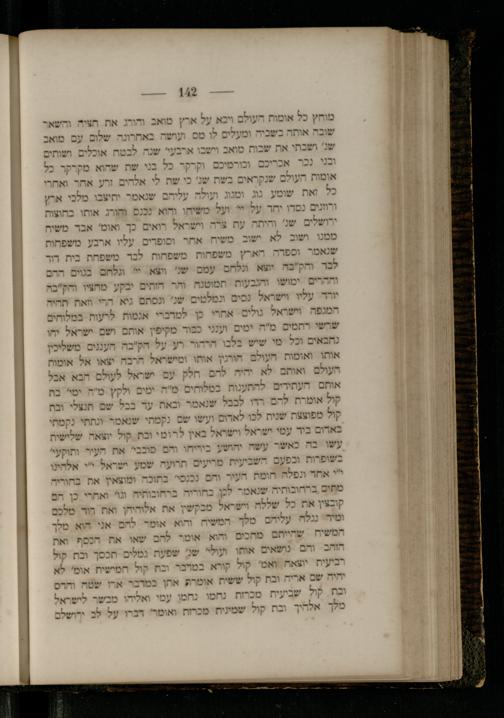 — 142 —
מוחץ כל אומות העולם ויבא על ארץ מואב והורג את חציה והשאר
שובה אותה בשביה ומעלים לו מס ועושה באחרונה שלום עם מואב
שנ׳ ושבתי את שבות מואב וישבו ארבעי׳ שנה לבטח אוכלים ושותים
ובני נכר אכריכם וכורמיכם וקרקר כל בני שת שהוא מקרקר כל
אומות העולם שנקראים בשת שנ׳ כי שת לי אלהים זרע אחר ואחרי
כל זאת שומע גוג ומגוג ועולה עליהם שנאמר יתיצבו מלכי ארץ
ורוזנים נוסדו יחד על יי׳ ועל משיחו והוא נכנס והורג אותו בחוצות
ירושלים שנ׳ והיתה עת צרה וישראל רואים כך ואומ׳ אבד משיח
ממנו ושוב לא ישוב משיח אחר וסופדים עליו ארבע משפחות
שנאמר וספדה הארץ משפחות משפחות לבד משפחת בית דוד
לבד והק״בה יוצא ונלחם עמם שנ׳ ויצא יי׳ ונלחם בגוים ההם
וההרים ימושו והגבעות תמוטנה והר הזתים יבקע מחציו והק״בה
יורד עליו וישראל נסים ונמלטים שנ׳ ונסתם גיא הרי וזאת תהיה
המגפה וישראל גולים אחרי כן למדברי אגמות לרעות במלוחים
שרשי רתמים מ״ה ימים וענני כבוד מקיפין אותם ושם ישראל יהו
נחבאים וכל מי שיש בלבו הרהור רע על הק״בה העננים משליכין
אותו ואומות העולם הורגין אותו ומישראל הרבה יצאו אל אומות
העולם ואותם לא יהיה להם חלק עם ישראל לעולם הבא אבל
אותם העתידים להתענות במלוחים מ״ה ימים ולקץ מ״ה ימי׳ בת
קול אומרת להם רדו לבבל שנאמר ובאת עד בבל שם תנצלי ובת
קול מפוצצת שנית לכו לאדום ועשו שם נקמתי שנאמר ונתתי נקמתי
באדום ביד עמי ישראל וישראל באין לרומי ובת קול יוצאה שלישית
עשו בה כאשר עשה יהושע ביריחו והם סובבי׳ את העיר ותוקעי׳
בשופרות ובפעם השביעית מריעים תרועה שמע ישראל יי׳ אלהינו
יי׳ אחד ונפלה חומת העיר והם נכנסי׳ בתוכה ומוצאין את בחוריה
מתים ברחובותיה שנאמר לכן בחוריה ברחובותיה וגו׳ ואחרי כן הם
קובצין את כל שללה וישראל מבקשין את אלוהיהן ואת דוד מלכם
ומיד נגלה עליהם מלך המשיח והוא אומר להם אני הוא מלך
המשיח שהייתם מחכים והוא אומר להם שאו את הכסף ואת
הזהב והם נושאים אותו ועולי׳ שנ׳ שפעת גמלים תכסך ובת קול
רביעית יוצאה ואמ׳ קול קורא במדבר ובת קול חמישית אומ׳ לא
יהיה שם אריה ובת קול ששית אומרת אתן במדבר ארז שטה והדס
ובת קול שביעית מכרזת נחמו נחמו עמי ואליהו מבשר לישראל
מלך אלהיך ובת קול שמינית מכרזת ואומר׳ דברו על לב ירושלם